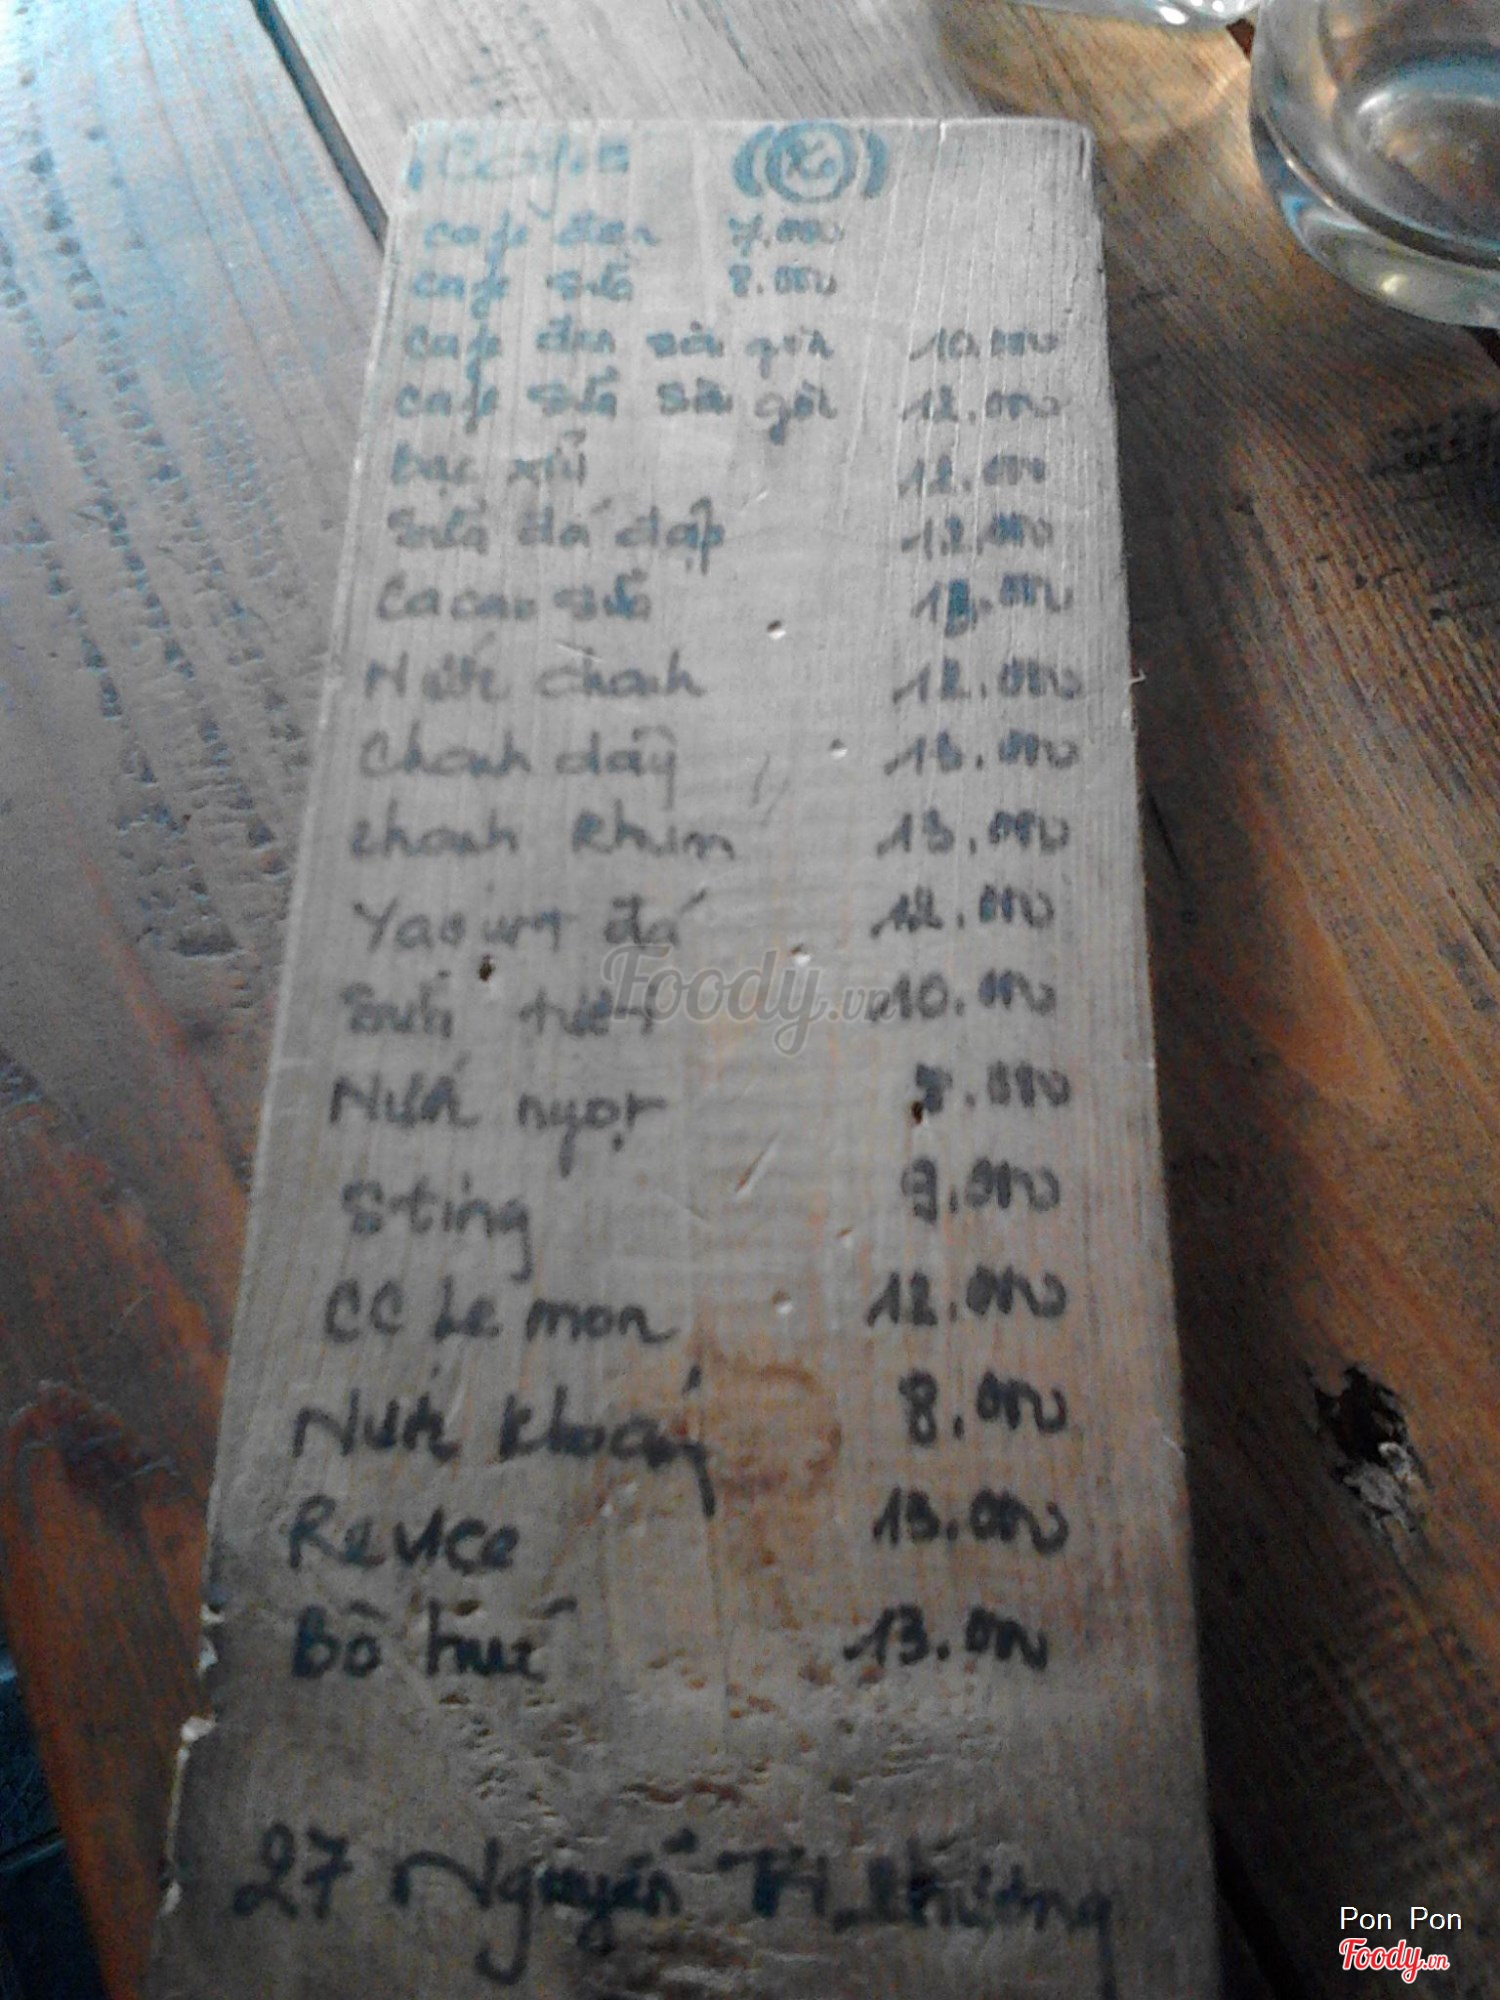 Cafe
cafe đen 7.000
cafe sữa 8.000
cafe đen sài gòn 10.000
cafe sữa sài gòn 12.000
bạc xỉu 12.000
sữa đá đập 12.000
Cacao sữa 13.000
Nước chanh 12.000
Chanh dây 13.000
chanh Rhum 13.000
Yaourt đá 12.000
Sữa tươi 10.000
Foody.vn
Nước ngọt 8.000
Sting 9.000
CC Lemon 12.000
Nước khoáng 8.000
Revice 13.000
Bò húc 13.000
27 Nguyễn Tri Phương
Pon Pon
Foody.vn